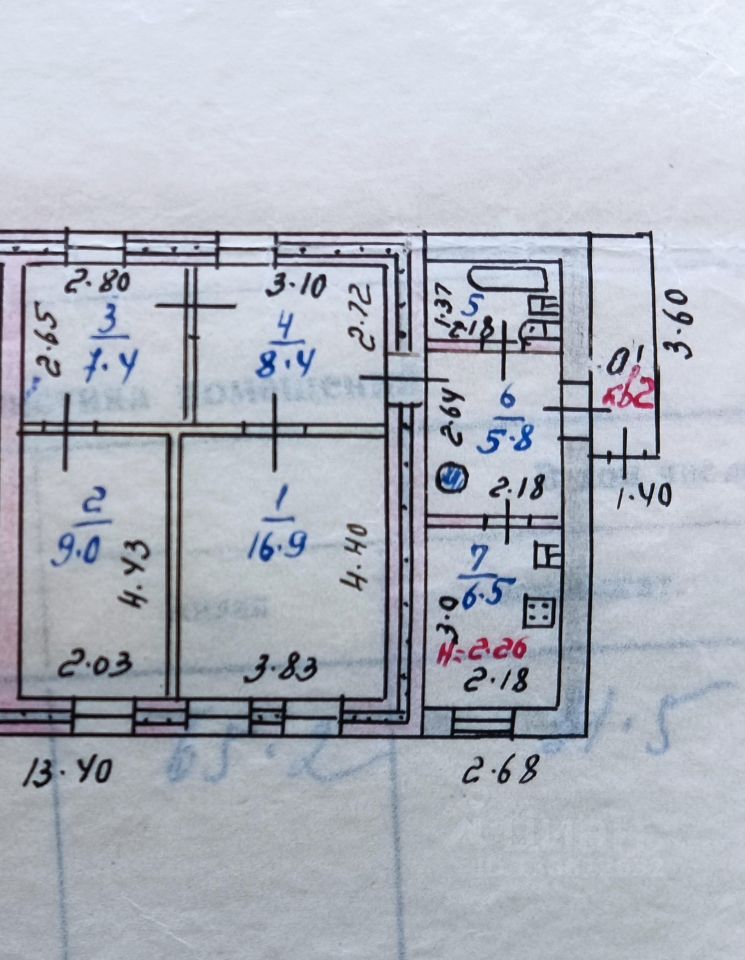 2.80
3.10
2.65
3
7.4
4
8.4
2.72
1.37
5
2.18
3.60
01
кв2
2.64
6
5.8
2.18
1.40
2
9.0
4.43
2.03
1
16.9
4.40
3.83
7
6.5
3.0
H=2.26
2.18
13.40
2.68
65.2